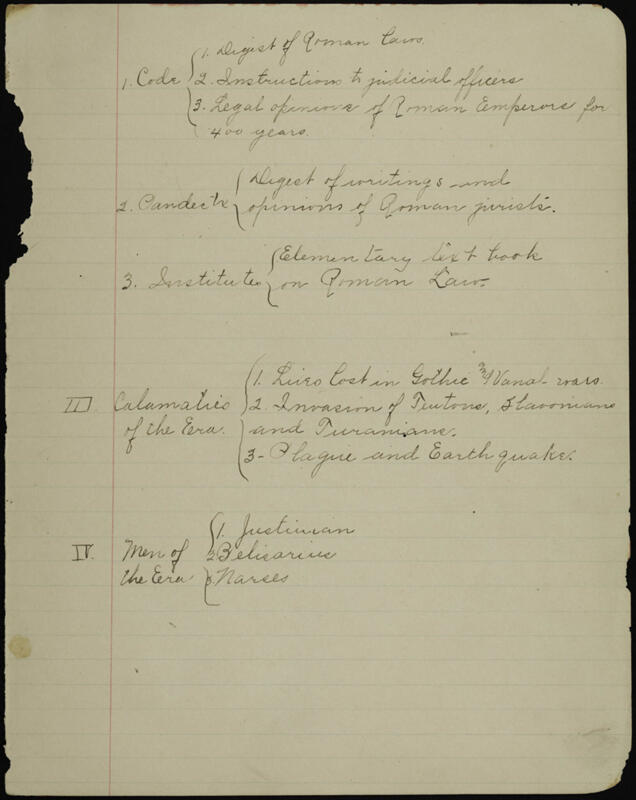 1. Digest of Roman Laws.
1. Code 2. Instructions to judicial officers
3. Legal opinions of Roman Emperors for
400 years.
Digest of writings and
2. Pandects opinions of Roman jurists.
Elementary text book
3. Institutes on Roman Law.
1. Lives lost in Gothic & Vanal wars.
III. Calamaties 2. Invasion of Teutons, Slavonians
of the Eera. and Turanians.
3- Plague and Earthquake.
1. Justinian
IV. Men of 2. Belisarius
the Eera 3. Narses